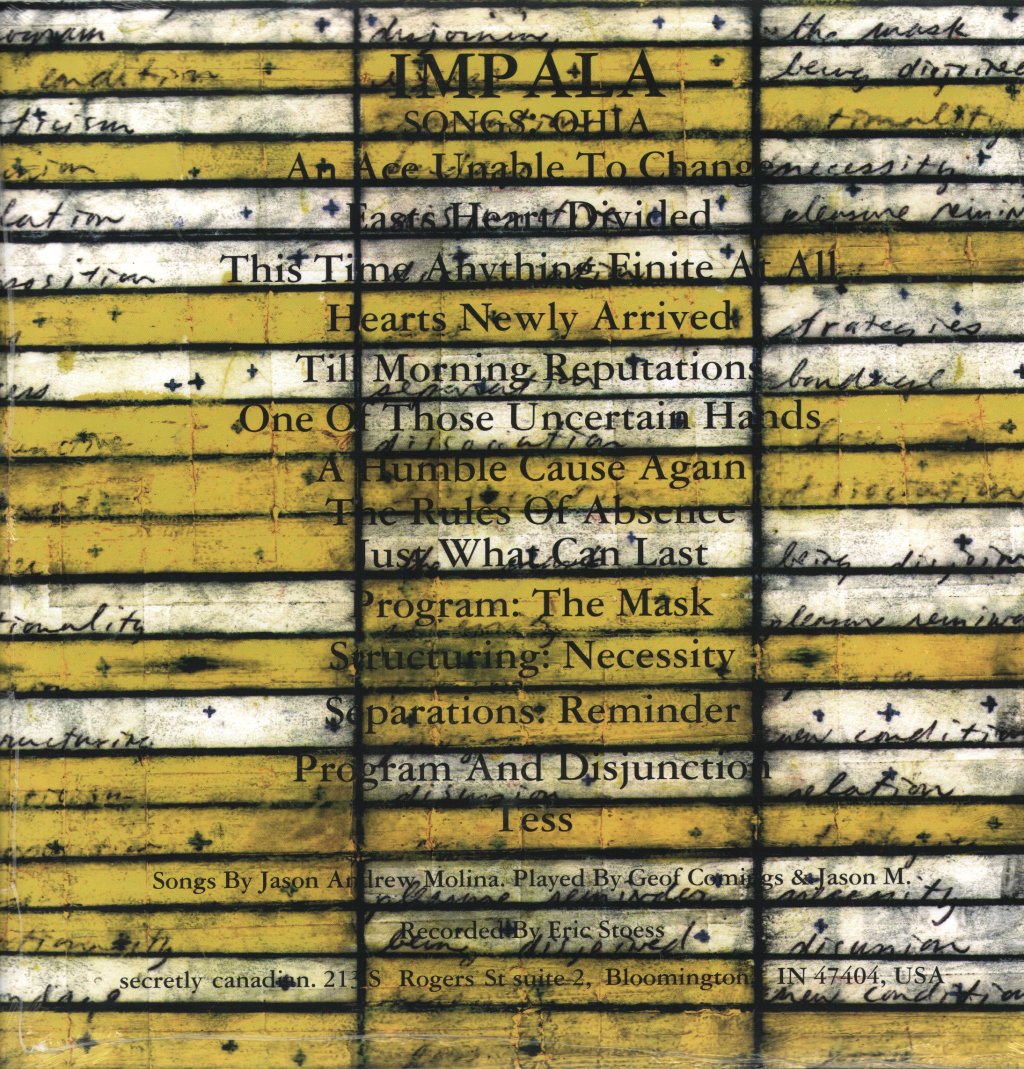 the mask
condition
IMPALA
being disjoined
SONGS: OHIA
An Ace Unable To Change
necessity
Easts Heart Divided
pleasure
This Time Anything Finite At All
Hearts Newly Arrived
strategies
Till Morning Reputations
bondage
One Of Those Uncertain Hands
dissociation
A Humble Cause Again
The Rules Of Absence
Just What Can Last
being
Program: The Mask
pleasure
Structuring: Necessity
Separations: Reminder
new
Program And Disjunction
relation
Tess
Songs By Jason Andrew Molina. Played By Geof Comings & Jason M.
pleasure reminder
necessity
Recorded By Eric Stoess
being
secretly canadian. 213 S Rogers St suite 2, Bloomington, IN 47404, USA
new